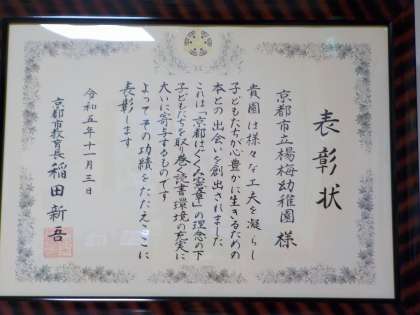 表彰状
京都市立楊梅幼稚園 様
貴園は様々な工夫を凝らし
子どもたちが心豊かに生きるための
本との出会いを創出されました
これは「京都はぐくみ憲章」の理念の下
子どもたちを取り巻く読書環境の充実に
大いに寄与するものです
よってその功績をたたえここに
表彰します
令和五年十一月三日
京都市教育長 稲田新吾